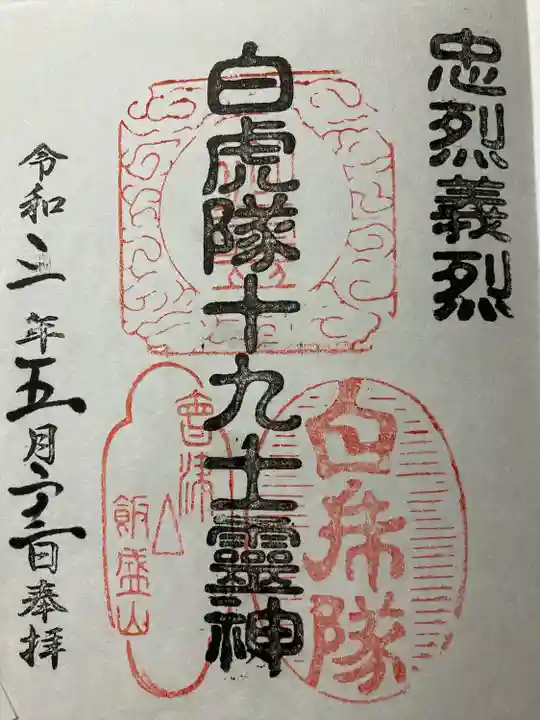 忠烈義烈
白虎隊十九士靈神
會津
飯盛山
白虎隊
令和三年五月二十二日奉拝